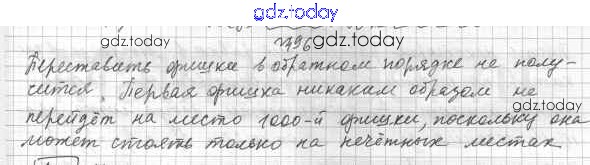 gdz.today
gdz.today
796 gdz.today
Переставить фишки в обратном порядке не полу-
чится. Первая фишка никаким образом не
gdz.today
перейдёт на место 1000-й фишки, поскольку она
может стоять только на нечётных местах